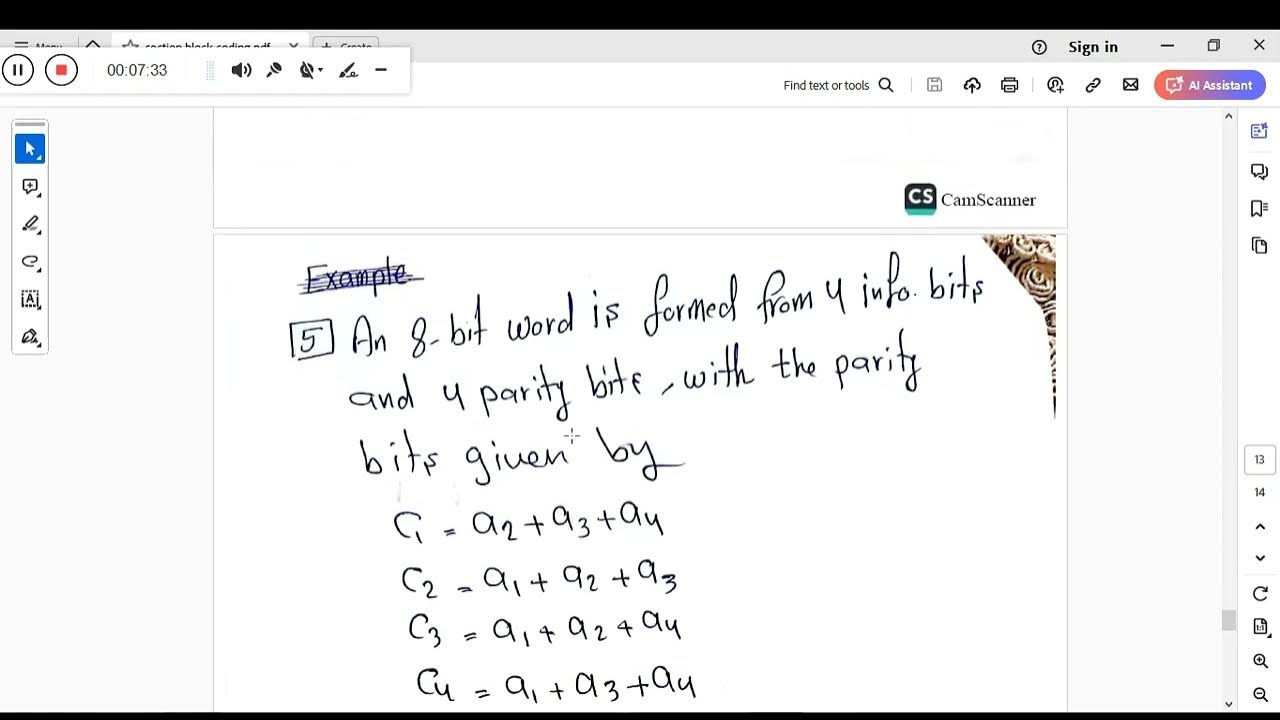 Menu
section block coding.pdf
Create
Sign in
00:07:33
Find text or tools
AI Assistant
CS CamScanner
Example
5 An 8-bit word is formed from 4 info. bits
and 4 parity bits, with the parity
bits given by
C1 = a2 + a3 + a4
C2 = a1 + a2 + a3
C3 = a1 + a2 + a4
C4 = a1 + a3 + a4
13
14